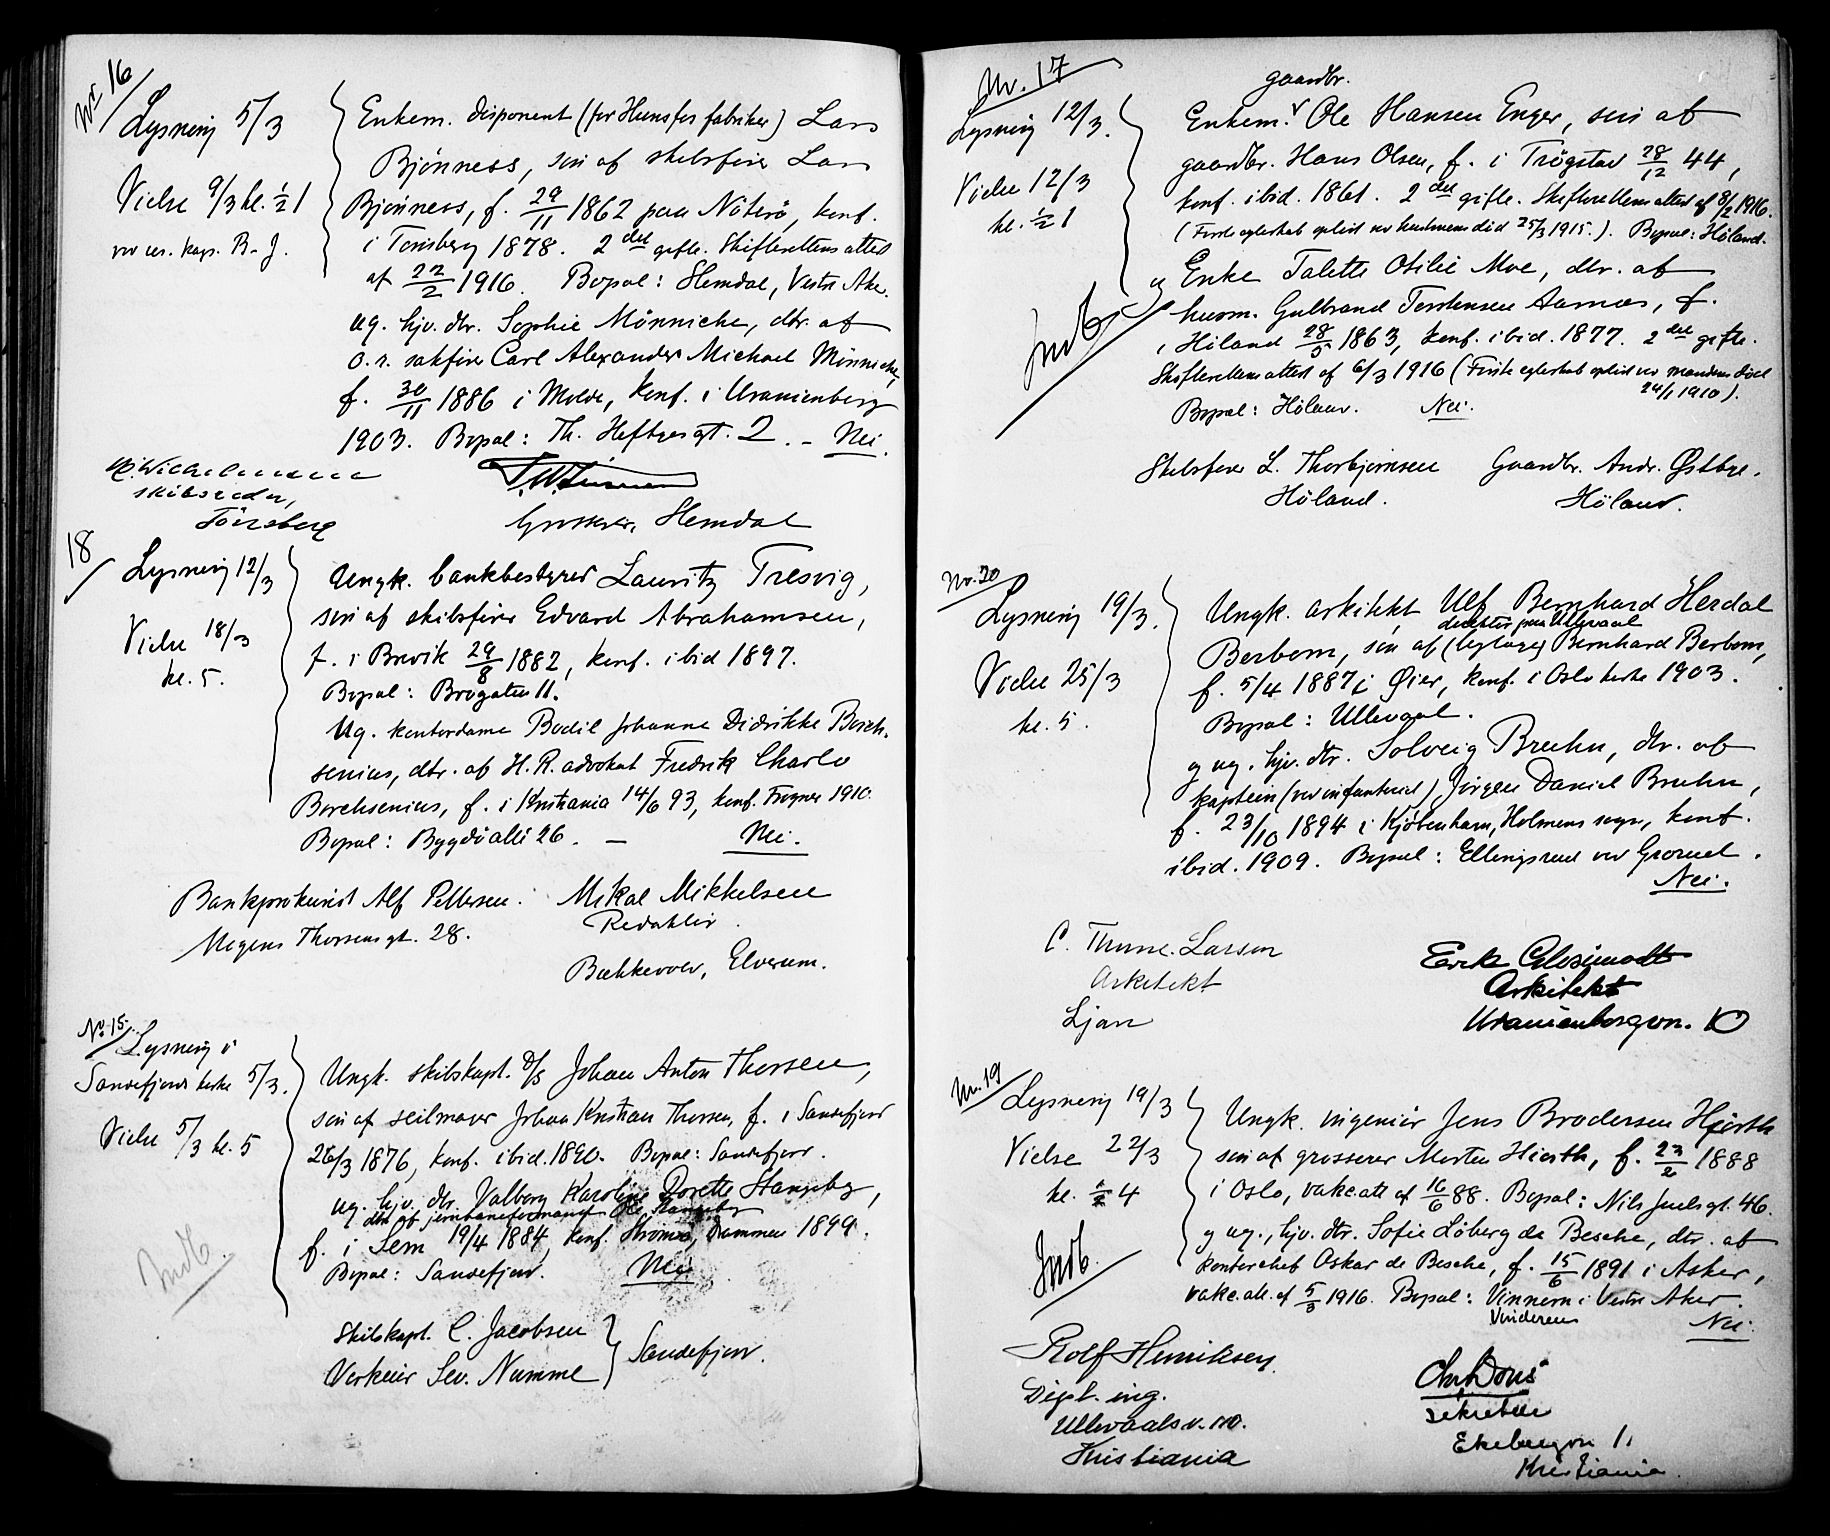 Nr 16
Lysning 5/3
Vielse 9/3 kl. ½ 1
ved res. kap. B-J.
Enkem. disponent (for Hunsfos fabriker) Lars
Bjönness, sön af skibsfører Lars
Bjönness, f. 29/11 1862 paa Nöterö, konf.
i Tönsberg 1878. 2 det gifte. Skifterettens attest
af 22/2 1916. Bopæl: Slemdal, Vestre Aker.
ug. hjv. dtr. Sophie Mönniche, dtr. af
o.r. sakfører Carl Alexander Michael Mönniche,
f. 30/11 1886 i Molde, konf. i Uranienborg
1903. Bopæl: Th. Heftyesgt. 2. - Nei.
Wilhelmsen
skibsreder,
Tönsberg
Grosserer, Slemdal
18
Lysning 12/3
Vielse 18/3
kl. 5.
Ungk. bankbestyrer Lauritz Tresvig,
sön af skibsfører Edvard Abrahamsen,
f. i Brevik 29/8 1882, konf. ibid 1897.
Bopæl: Brogaten 11.
Ug. kontordame Bodil Johanne Didrikke Borch-
senius, dtr. af H.R. advokat Fredrik Charlo
Borchsenius, f. i Kristiania 14/6 93, konf. Frogner 1910.
Bopæl: Bygdö allé 26. — Nei.
Bankprokurist Alf Pettersen.
Mogens Thorsensgt. 28.
Mikal Mikkelsen
Redaktör
Bækkevold, Elverum.
No. 15.
Lysning i
Sandefjords kirke 5/3.
Vielse 5/3 kl. 5
Ungk. skibskapt. D/S Johan Anton Thorsen,
sön af seilmager Johan Kristian Thorsen, f. i Sandefjord
26/3 1876, konf. ibid. 1890. Bopæl: Sandefjord.
ug. hjv. dtr. Valborg Karoline Dorette Stangeby,
dtr. af jernbaneformand Ole Stangeby
f. i Sem 19/4 1884, konf. Strömsö, Drammen 1899.
Bopæl: Sandefjord. Nei
Indb.
Skibskapt. C. Jacobsen
Verkeier Sev. Numme
Sandefjord.
Nr. 17
Lysning 12/3.
Vielse 12/3
kl. ½ 1
gaardbr.
Enkem. Ole Hansen Enger, sön af
gaardbr. Hans Olsen, f. i Trögstad 28/12 44,
konf. ibid. 1861. 2 det gifte. Skifterettens attest af 8/2 1916.
(Förste egteskab oplöst ved hustruens död 25/3 1915.). Bopæl: Höland.
og Enke Talette Otilie Moe, dtr. af
husm. Gulbrand Torstensen Aamos, f.
i Höland 28/5 1863, konf. ibid. 1877. 2 det gifte.
Skifterettens attest af 6/3 1916 (Förste egteskab oplöst ved mandens död
24/1 1910).
Bopæl: Höland. Nei.
Indb.
Skibsfører L. Thorbjørnsen
Höland.
Gaardbr. Andr. Østbye.
Höland.
Nr. 20
Lysning 19/3.
Vielse 25/3
kl. 5.
Ungk. arkitekt Ulf Bernhard Herdal
direktør paa Ullevaal
Berbom, sön af (bylæge) Bernhard Berbom,
f. 5/4 1887 i Øier, konf. i Oslo kirke 1903.
Bopæl: Ullevaal.
og ug. hjv. dtr. Solveig Bruhn, dtr. af
kaptein (ved infanteriet) Jörgen Daniel Bruhn,
f. 23/10 1894 i Kjøbenhavn, Holmens sogn, konf.
ibid. 1909. Bopæl: Ellingsrud ved Grorud.
Nei.
C. Thune-Larsen
Arkitekt
Ljan
Erik Glosimodt
Arkitekt
Uranienborgvn. 10
Nr. 19
Lysning 19/3
Vielse 22/3
kl. ½ 4
Indb.
Ungk. ingeniör Jens Brodersen Hjorth
sön af grosserer Morten Hiorth, f. 23/2 1888
i Oslo, vakc.att af 16/6 88. Bopæl: Nils Juelsgt. 46.
og ug., hjv. dtr. Sofie Löberg de Besche, dtr. af
kontorchef Oskar de Besche, f. 15/6 1891 i Asker,
vakc.att. af 5/3 1916. Bopæl: Vinnern i Vestre Aker.
Vinderen
Nei.
Rolf Henriksen
Dipl. ing.
Ullevaalsv. 110.
Kristiania
Chr. Dons
sekretær
Ekebergvn 1.
Kristiania.